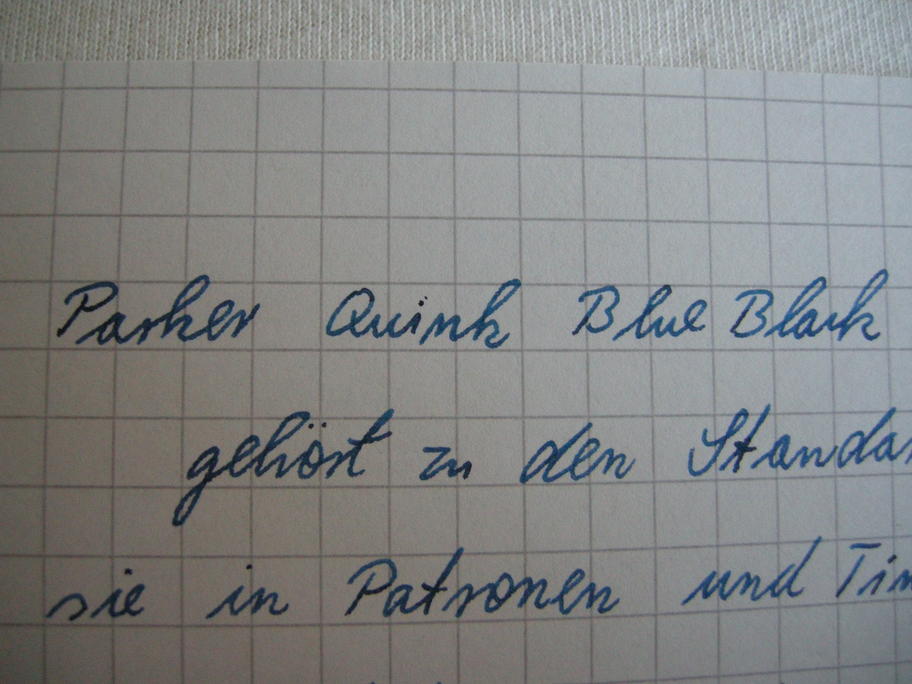 Parker Quink Blue Black
gehört zu den Standar
sie in Patronen und Tin